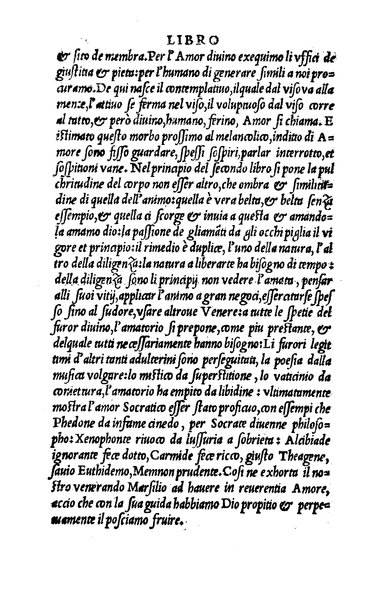 LIBRO
& sito de membra. Per l'Amor diuino exequimo li vffici de
giustitia & pieta: per l'humano di generare simili a noi pro-
curamo. De qui nasce il contemplatiuo, ilquale dal viso va alla
mente, l'attiuo se ferma nel viso, il voluptuoso dal viso corre
al tatto, & però diuino, humano, ferino, Amor si chiama. E
istimato questo morbo prossimo al melancolico, inditio di A-
more sono fisso guardare, spessi sospiri, parlar interrotto, et
sospitioni vane. Nel principio del secondo libro si pone la pul
chritudine del corpo non esser altro, che ombra & similitu-
dine di quella dell'animo: quella è vera belta, & belta senza
essempio, & quella ci scorge & inuia a questa & amando-
la amamo dio: la passione de gliamāti da gli occhi piglia il vi
gore et principio: il rimedio è duplice, l'uno della natura, l'al
tro della diligenza: la natura a liberarte ha bisogno di tempo:
della diligenza sono li principij non vedere l'amata, pensar
alli suoi vitij, applicar l'animo a gran negoci, essercitarse spes
so fino al sudore, vsare altroue Venere: a tutte le spetie del
furor diuino, l'amatorio si prepone, come piu prestante, &
delquale tutti necessariamente hanno bisogno: Li furori legit
timi d'altri tanti adulterini sono perseguitati, la poesia dalla
musica volgare: lo mistico da superstitione, lo vaticinio da
coniettura, l'amatorio ha empito da libidine: vltimatamente
mostra l'amor Socratico esser stato proficuo, con essempi che
Phedone da infame cinedo, per Socrate diuenne philoso-
pho: Xenophonte riuoco da lussuria a sobrieta: Alcibiade
ignorante fece dotto, Carmide fece ricco, giusto Theagene,
sauio Euthidemo, Memnon prudente. Cosi ne exhorta il no-
stro venerando Marsilio ad hauere in reuerentia Amore,
accio che con la sua guida habbiamo Dio propitio & perpe-
tuamente il posciamo fruire.